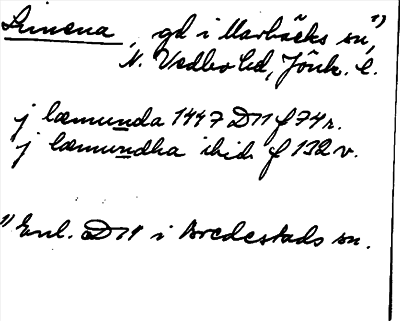 Limena, gd i Marbäcks sn,¹)
N. Vedbo hd, Jönk. l.
j læmunda 1447 D11 f 74 r.
j læmundha ibid f 132 v.
¹) Enl. D11 i Bredestads sn.